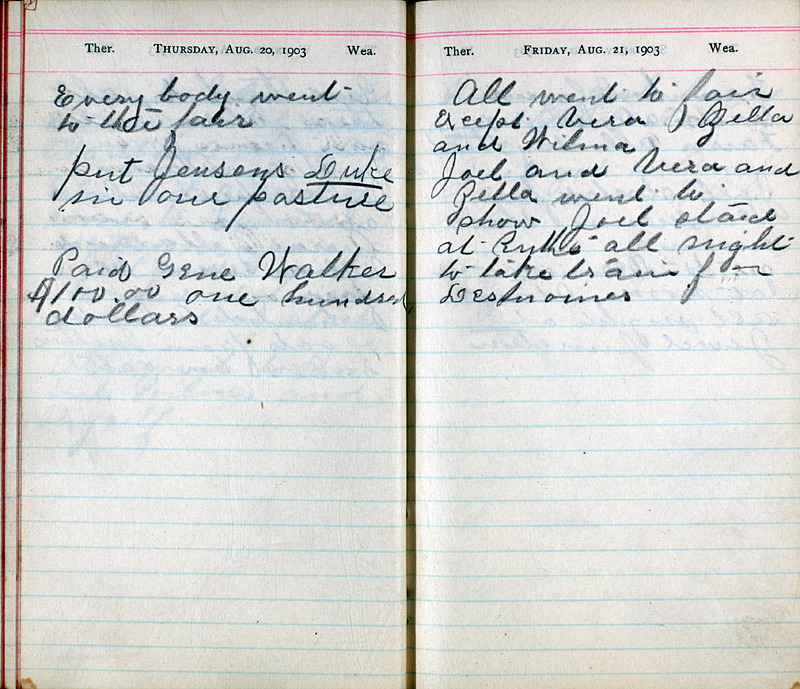 Ther. THURSDAY, AUG. 20, 1903 Wea.
Every body went
to the fair
put Jensens Duke
in our pasture
Paid Gene Walker
$100.00 one hundred
dollars
Ther. FRIDAY, AUG. 21, 1903 Wea.
All went to fair
Except Vera Zella
and Wilma
Joel and Vera and
Zella went to
show Joel staid
at all night
to take train for
Desmoines